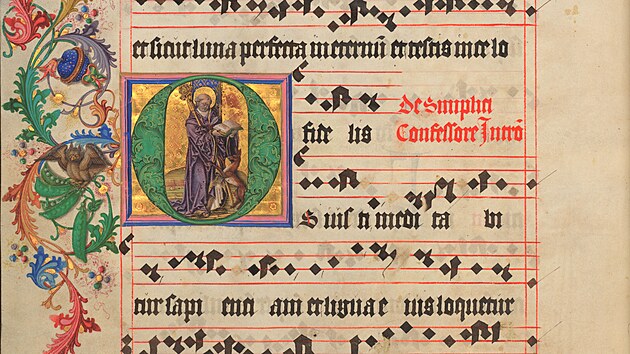 et sicut luna perfecta in eternū et testis in celo
De Simplici
fide lis Confessore Intrō
O S iusti medi ta bi
tur sapi enti am et ligua e ius loquetur